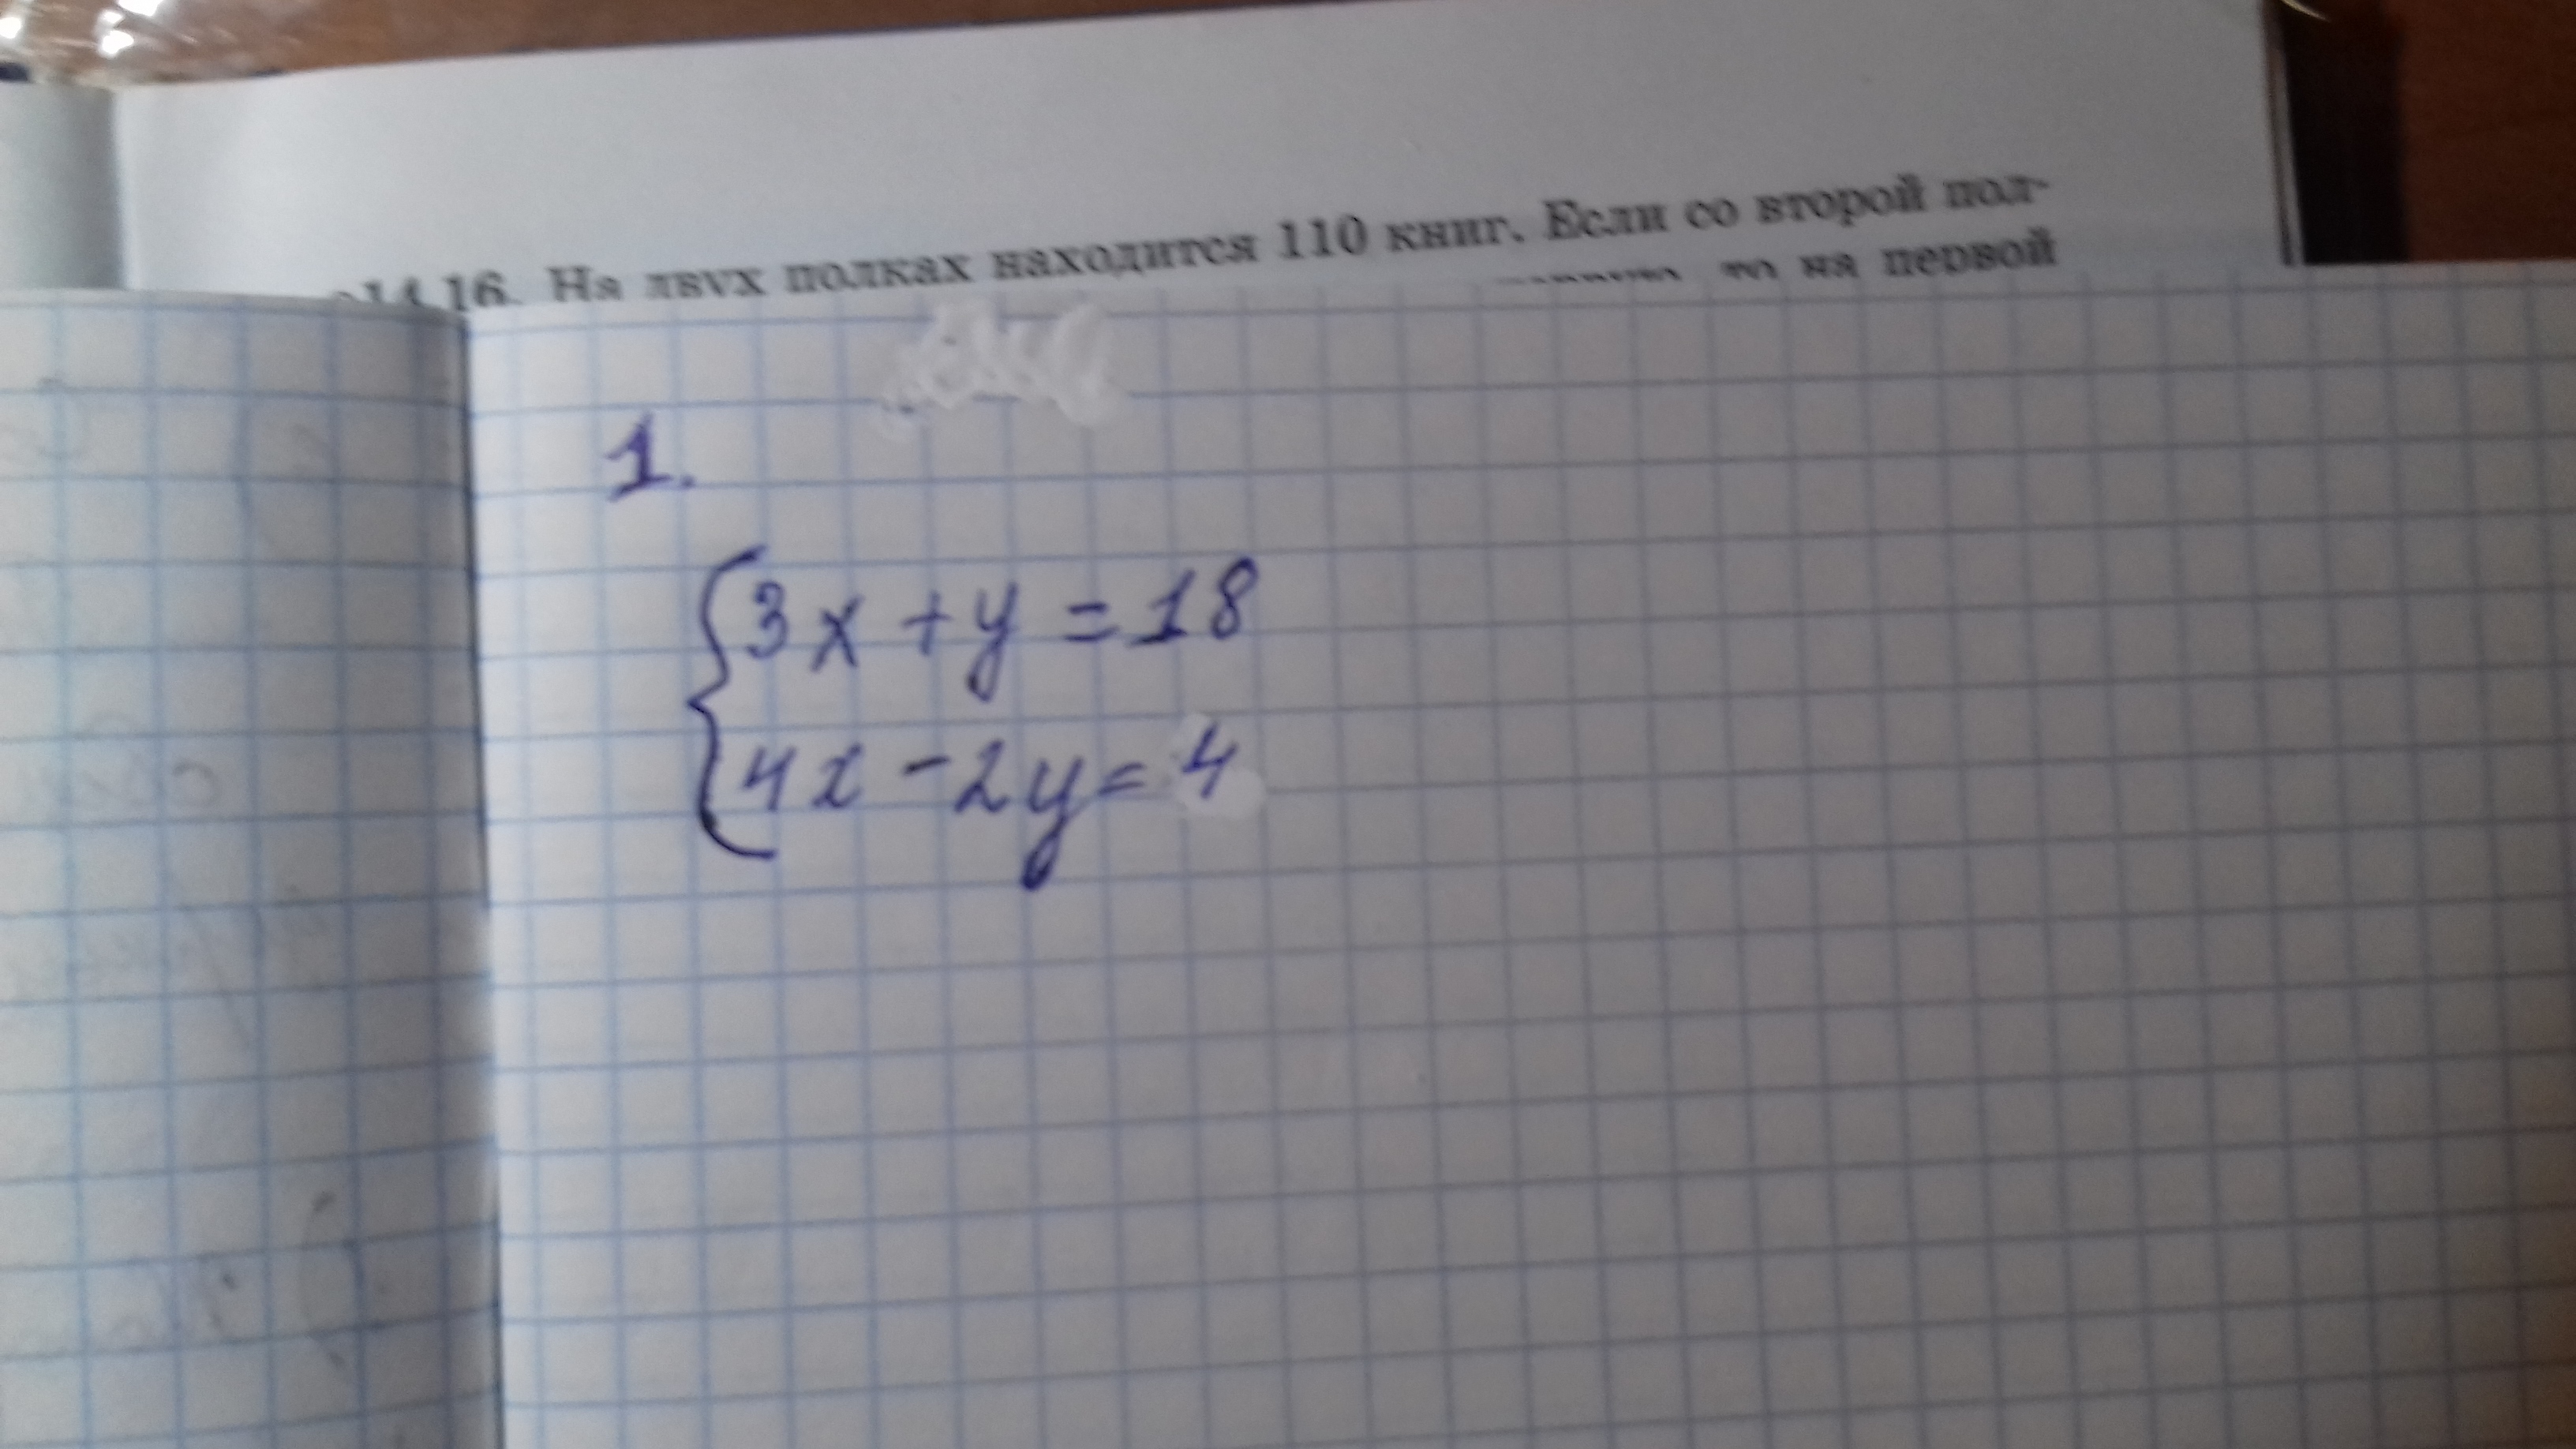 14.16. На двух полках находится 110 книг. Если со второй пол-
то на первой
1.
3x + y = 18
4x - 2y = 4